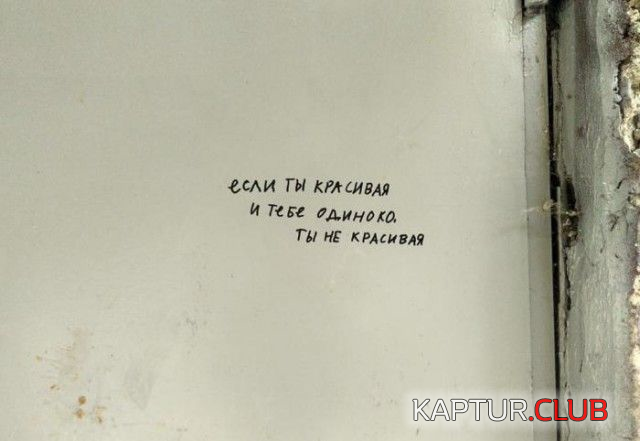 если ты красивая
и тебе одиноко.
ты не красивая
KAPTUR.CLUB